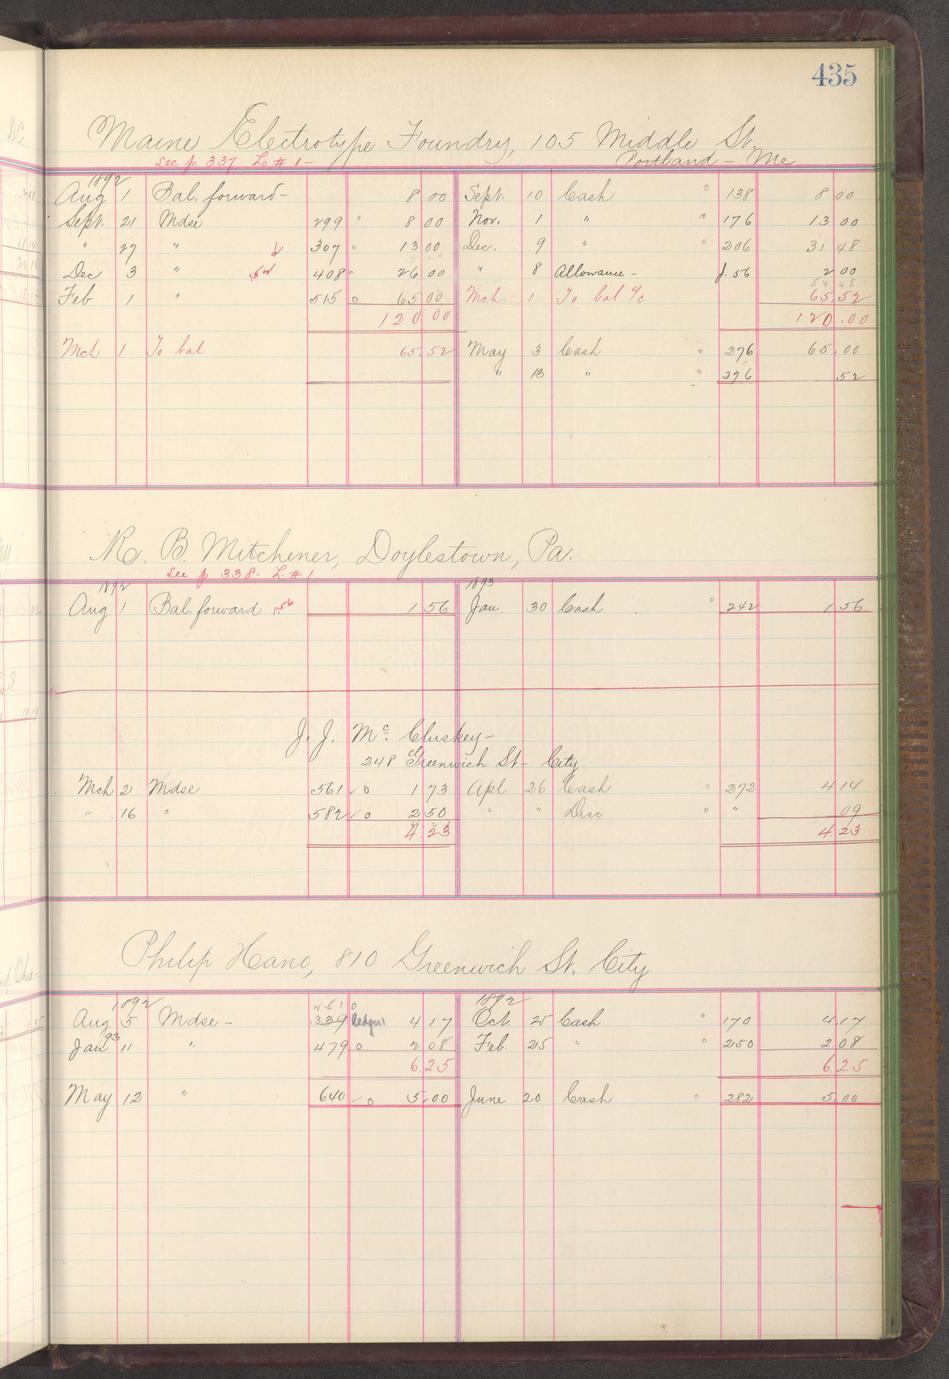 435
Maine Electrotype Foundry, 105 Middle St.
See p 337 L # 1 - Portland - Me
1892
Aug 1 Bal. forward - 8 00 Sept. 10 Cash 138 8 00
Sept. 21 Mdse 299 8 00 Nov. 1 " 176 13 00
" 27 " 307 13 00 Dec. 9 " 206 31 48
Dec 3 " 52 408 26 00 " 8 Allowance - J. 56 2 00
54 48
Feb 1 " 515 65 00 Mch 1 To bal a/c 65.52
120 00 120.00
Mch 1 To bal 65.52 May 3 Cash 276 65.00
" 13 " 276 52
R. B. Mitchener, Doylestown, Pa.
See p 338 L # 1
1892 1893
Aug 1 Bal. forward 1.56 1 56 Jan. 30 Cash 242 1 56
J. J. Mc Cluskey -
248 Greenwich St - City
Mch 2 Mdse 561 1 73 Apl 26 Cash 272 4 14
" 16 " 582 2 50 " " Disc " 09
4 23 4 23
Philip Hano, 810 Greenwich St. City
1892 1892
Aug 5 Mdse - 339 Ledger 4 17 Oct. 25 Cash 170 4 17
Jan 93 11 " 479 2 08 Feb 25 " 250 2 08
6 25 6 25
May 12 " 640 5.00 June 20 Cash 282 5.00